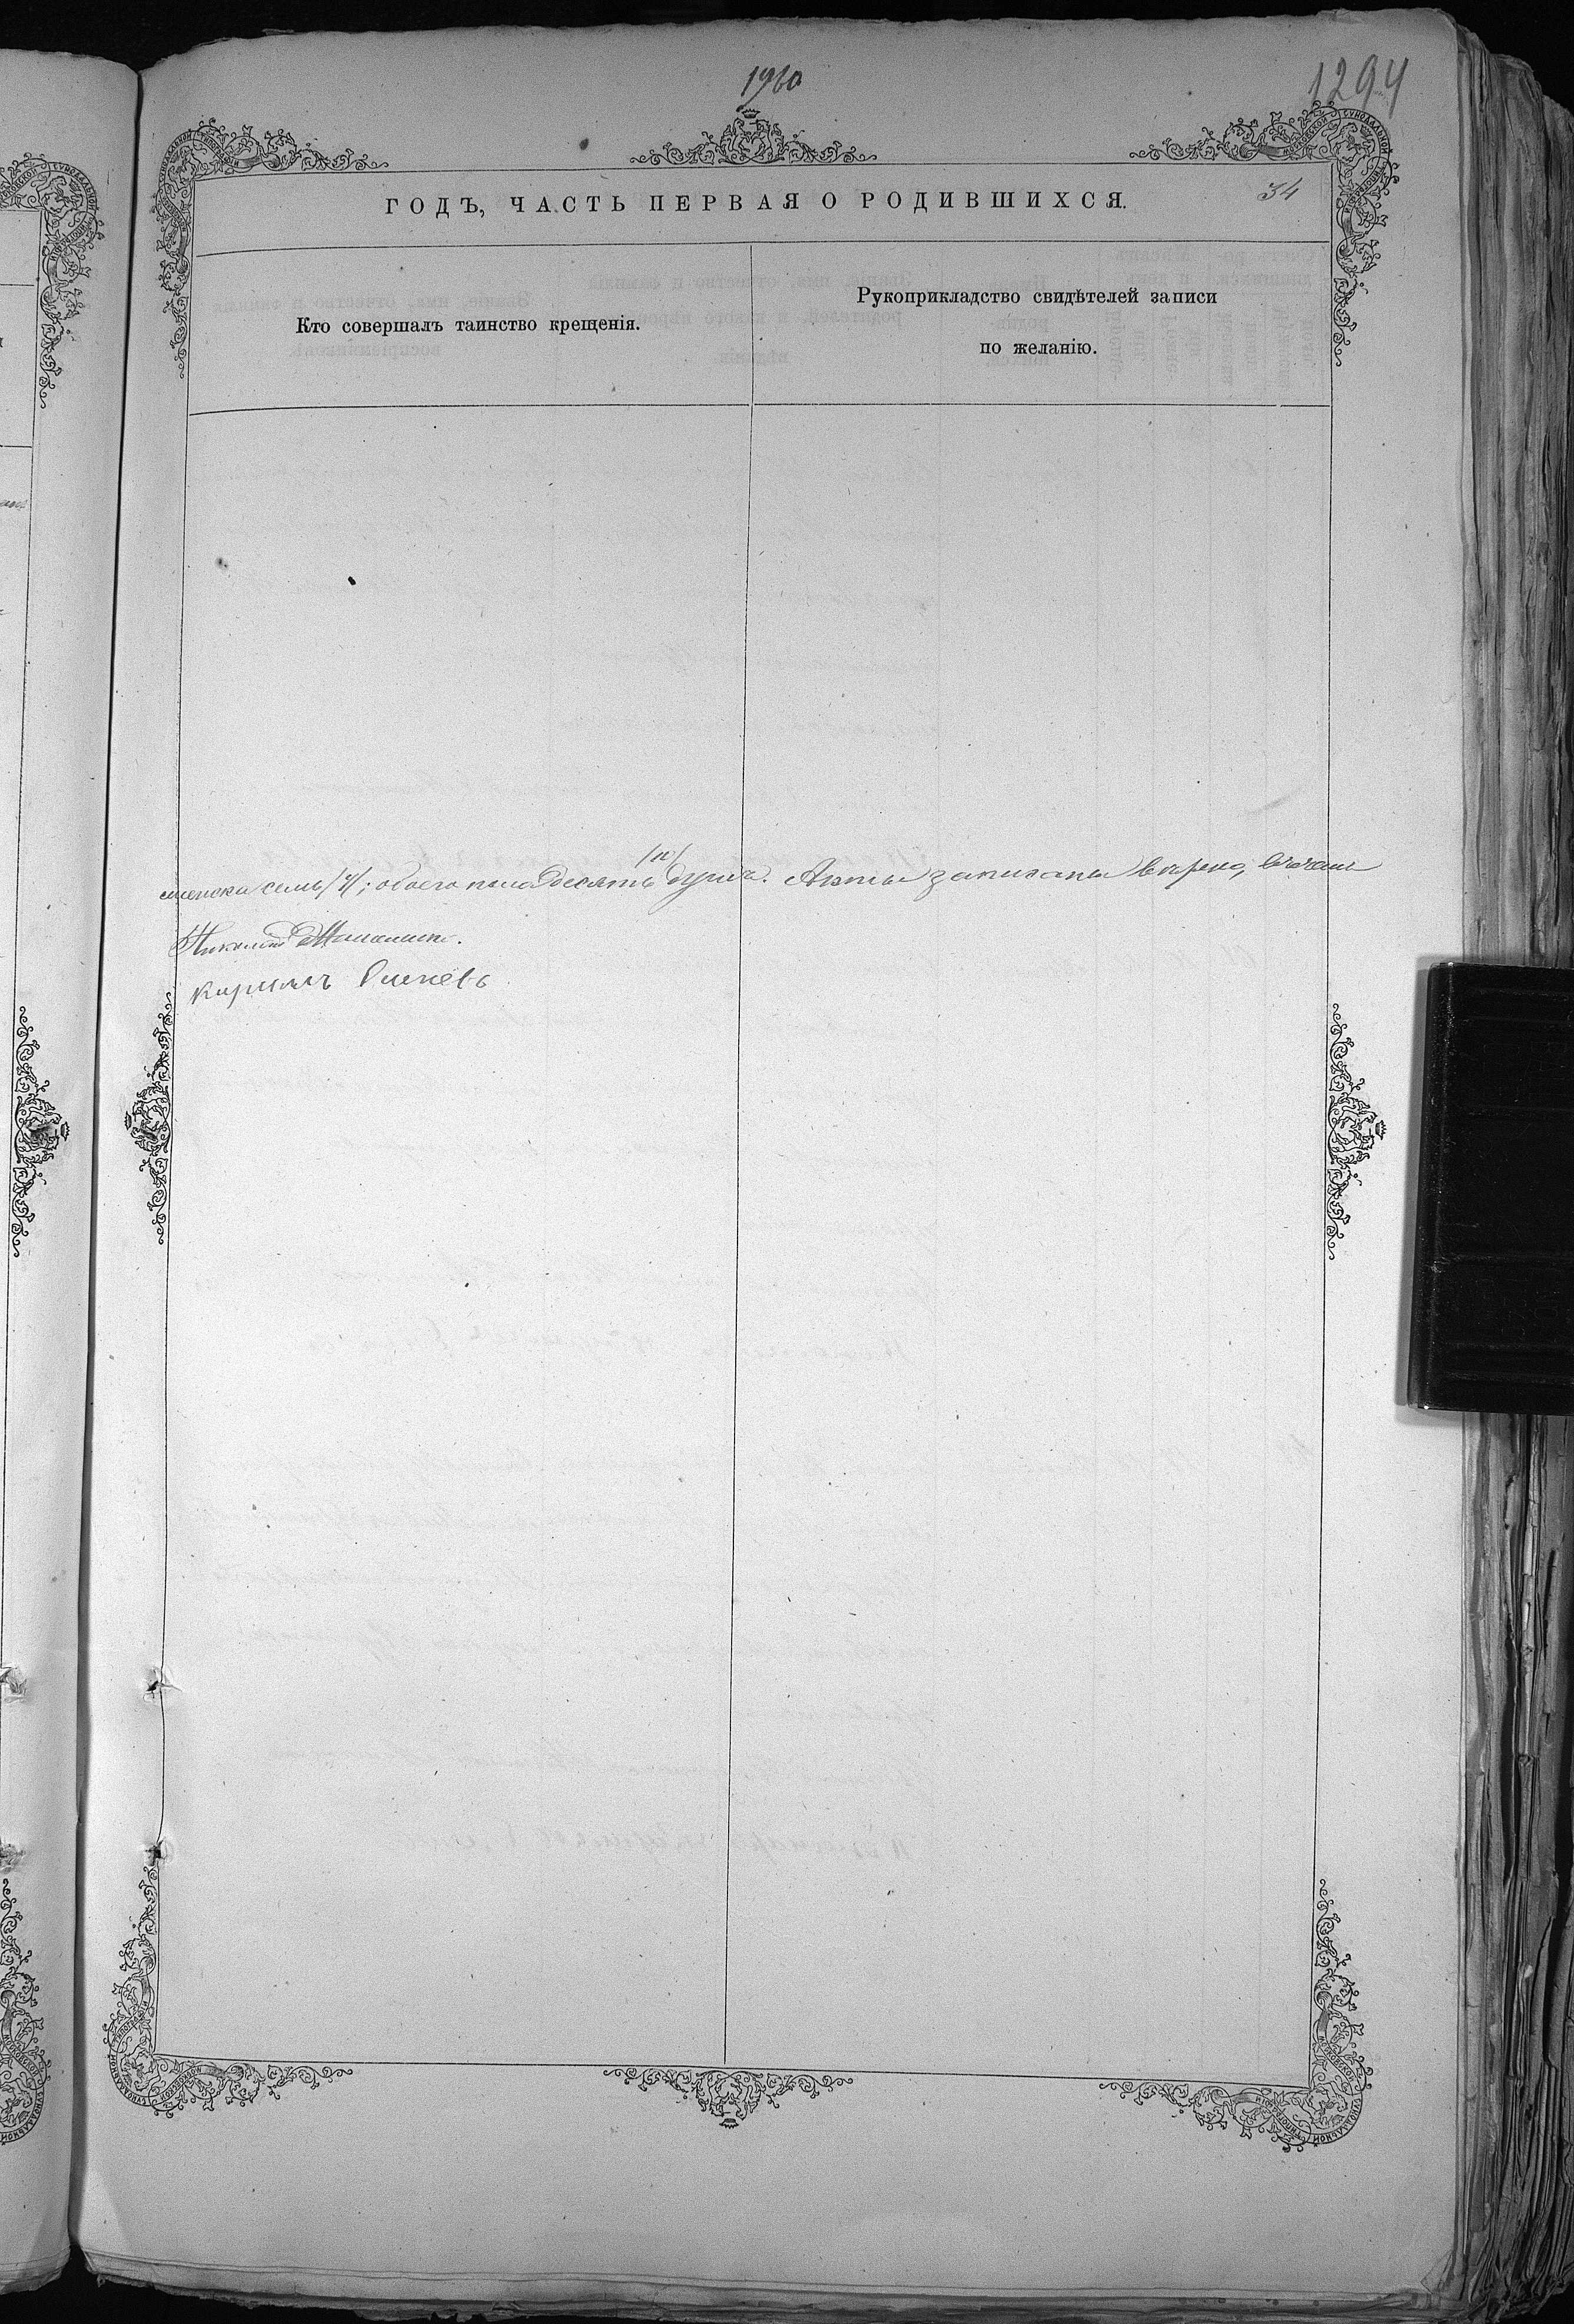 1960
1294
ГОДЪ, ЧАСТЬ ПЕРВАЯ О РОДИВШИХСЯ.
34
Кто совершалъ таинство крещенія.
Рукоприкладство свидѣтелей записи
по желанію.
/10/
женска семь /7/; обоего пола десять душъ. Акты записаны вѣрно,
Николай
Кириллъ